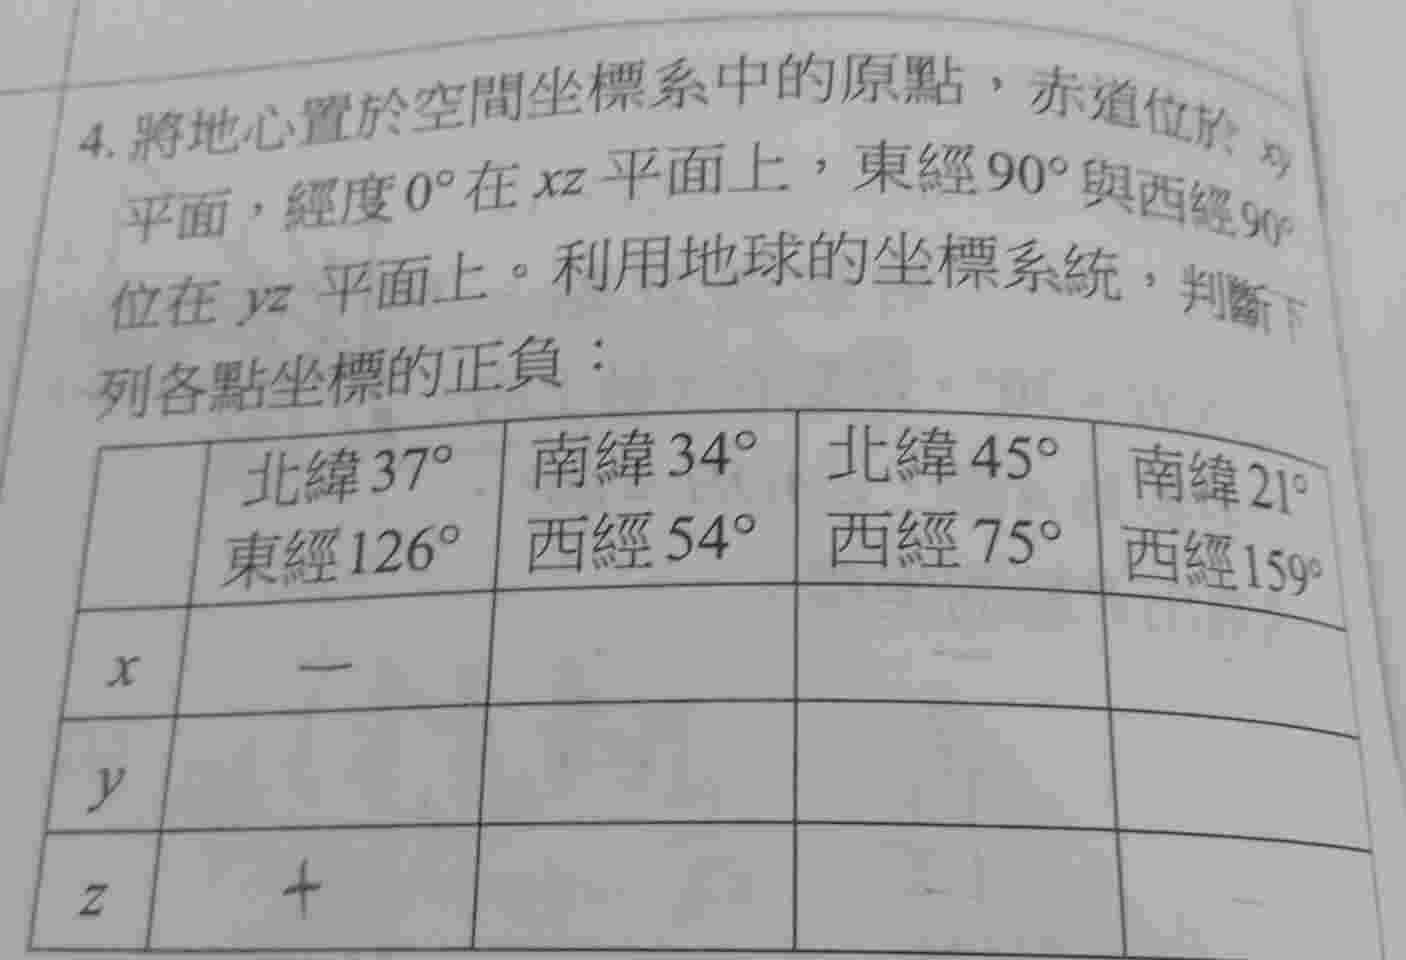 4. 將地心置於空間坐標系中的原點，赤道位於 xy
平面，經度0°在 xz 平面上，東經90°與西經90°
位在 yz 平面上。利用地球的坐標系統，判斷下
列各點坐標的正負：
北緯37° 南緯34° 北緯45° 南緯21°
東經126° 西經54° 西經75° 西經159°
x —
y
z +